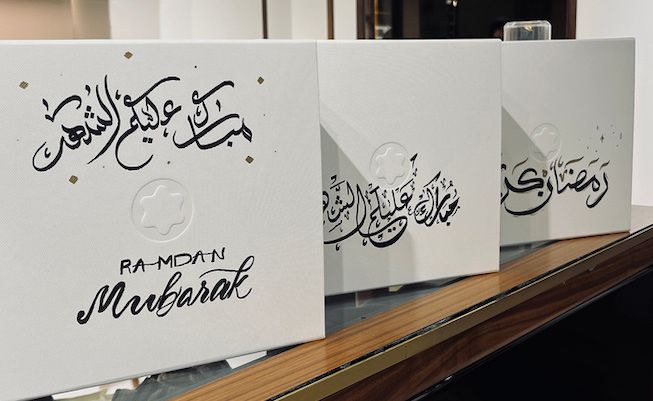 مبارك عليكم الشهر
RAMDAN
Mubarak
مُبارك عَليكم الشَّه
رَمَضَان كَر